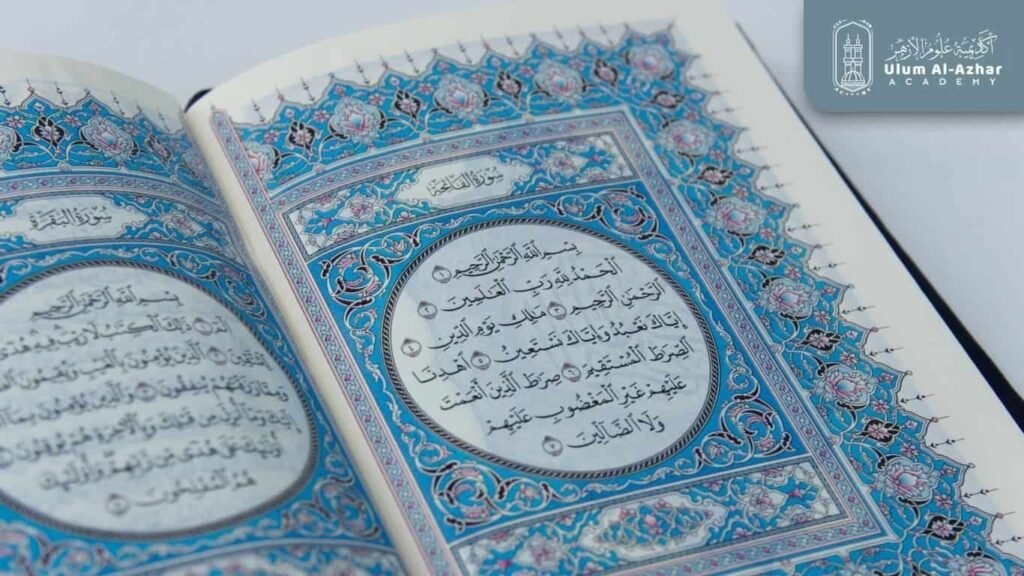 أكاديمية علوم الأزهر
Ulum Al-Azhar
ACADEMY
سُورَةُ الفَاتِحَةِ
بِسْمِ ٱللَّهِ ٱلرَّحْمَٰنِ ٱلرَّحِيمِ ١
ٱلْحَمْدُ لِلَّهِ رَبِّ ٱلْعَٰلَمِينَ ٢
ٱلرَّحْمَٰنِ ٱلرَّحِيمِ ٣ مَٰلِكِ يَوْمِ ٱلدِّينِ ٤
إِيَّاكَ نَعْبُدُ وَإِيَّاكَ نَسْتَعِينُ ٥ ٱهْدِنَا
ٱلصِّرَٰطَ ٱلْمُسْتَقِيمَ ٦ صِرَٰطَ ٱلَّذِينَ أَنْعَمْتَ
عَلَيْهِمْ غَيْرِ ٱلْمَغْضُوبِ عَلَيْهِمْ
وَلَا ٱلضَّآلِّينَ ٧
سُورَةُ البَقَرَةِ
بِسْمِ ٱللَّهِ ٱلرَّحْمَٰنِ ٱلرَّحِيمِ
الٓمٓ ١ ذَٰلِكَ ٱلْكِتَٰبُ لَا رَيْبَ فِيهِ هُدًى
لِّلْمُتَّقِينَ ٢ ٱلَّذِينَ يُؤْمِنُونَ بِٱلْغَيْبِ وَيُقِيمُونَ
وَمِمَّا رَزَقْنَٰهُمْ يُنفِقُونَ ٣ وَٱلَّذِينَ يُؤْمِنُونَ بِمَآ
إِلَيْكَ وَمَآ أُنزِلَ مِن قَبْلِكَ وَبِٱلْءَاخِرَةِ هُمْ يُوقِنُونَ ٤
أُو۟لَٰٓئِكَ عَلَىٰ هُدًى مِّن رَّبِّهِمْ وَأُو۟لَٰٓئِكَ
هُمُ ٱلْمُفْلِحُونَ ٥